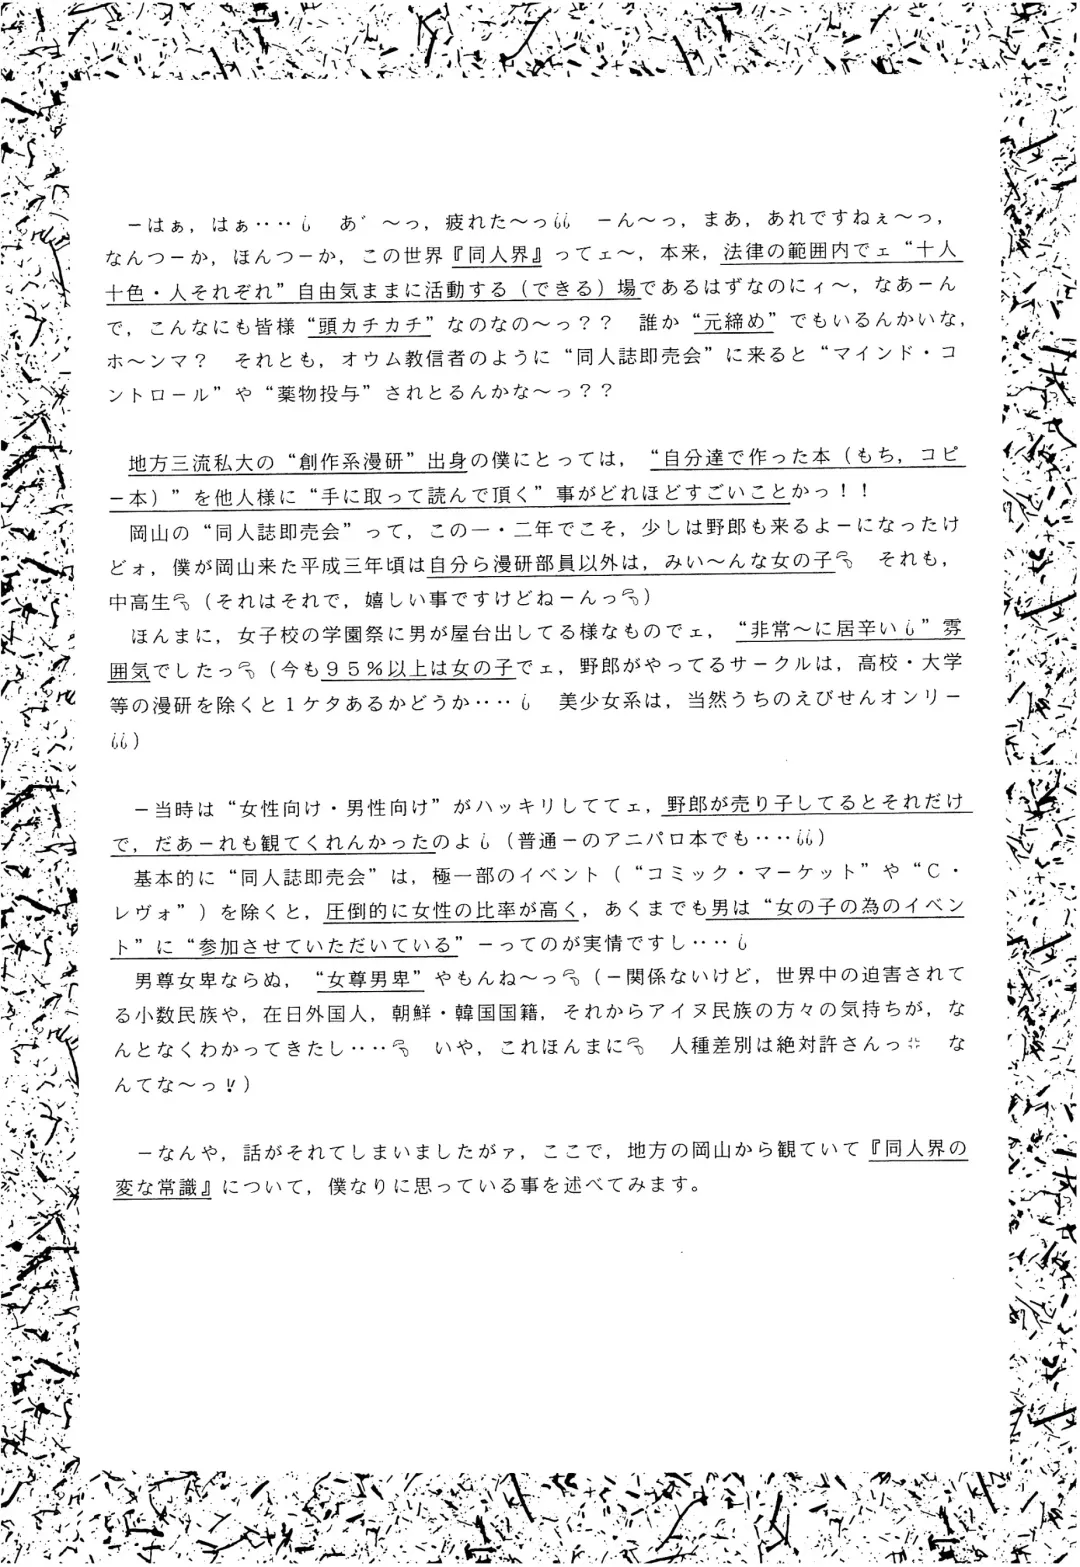 ーはぁ，はぁ‥‥ あ゛〜っ，疲れた〜っ ーん〜っ，まあ，あれですねぇ〜っ，
なんつーか，ほんつーか，この世界『同人界』ってェ〜，本来，法律の範囲内でェ“十人
十色・人それぞれ”自由気ままに活動する（できる）場であるはずなのにィ〜，なあーん
で，こんなにも皆様“頭カチカチ”なのなの〜っ？？ 誰か“元締め”でもいるんかいな，
ホ〜ンマ？ それとも，オウム教信者のように“同人誌即売会”に来ると“マインド・コ
ントロール”や“薬物投与”されとるんかな〜っ？？
地方三流私大の“創作系漫研”出身の僕にとっては，“自分達で作った本（もち，コピ
ー本）”を他人様に“手に取って読んで頂く”事がどれほどすごいことかっ！！
岡山の“同人誌即売会”って，この一・二年でこそ，少しは野郎も来るよーになったけ
どォ，僕が岡山来た平成三年頃は自分ら漫研部員以外は，みい〜んな女の子 それも，
中高生（それはそれで，嬉しい事ですけどねーんっ）
ほんまに，女子校の学園祭に男が屋台出してる様なものでェ，“非常〜に居辛い”雰
囲気でしたっ（今も９５％以上は女の子でェ，野郎がやってるサークルは，高校・大学
等の漫研を除くと１ケタあるかどうか‥‥ 美少女系は，当然うちのえびせんオンリー
）
ー当時は“女性向け・男性向け”がハッキリしててェ，野郎が売り子してるとそれだけ
で，だあーれも観てくれんかったのよ（普通ーのアニパロ本でも‥‥）
基本的に“同人誌即売会”は，極一部のイベント（“コミック・マーケット”や“Ｃ・
レヴォ”）を除くと，圧倒的に女性の比率が高く，あくまでも男は“女の子の為のイベン
ト”に“参加させていただいている”ーってのが実情ですし‥‥
男尊女卑ならぬ，“女尊男卑”やもんね〜っ（ー関係ないけど，世界中の迫害されて
る小数民族や，在日外国人，朝鮮・韓国国籍，それからアイヌ民族の方々の気持ちが，な
んとなくわかってきたし‥‥ いや，これほんまに 人種差別は絶対許さんっ な
んてな〜っ!!）
ーなんや，話がそれてしまいましたがァ，ここで，地方の岡山から観ていて『同人界の
変な常識』について，僕なりに思っている事を述べてみます。